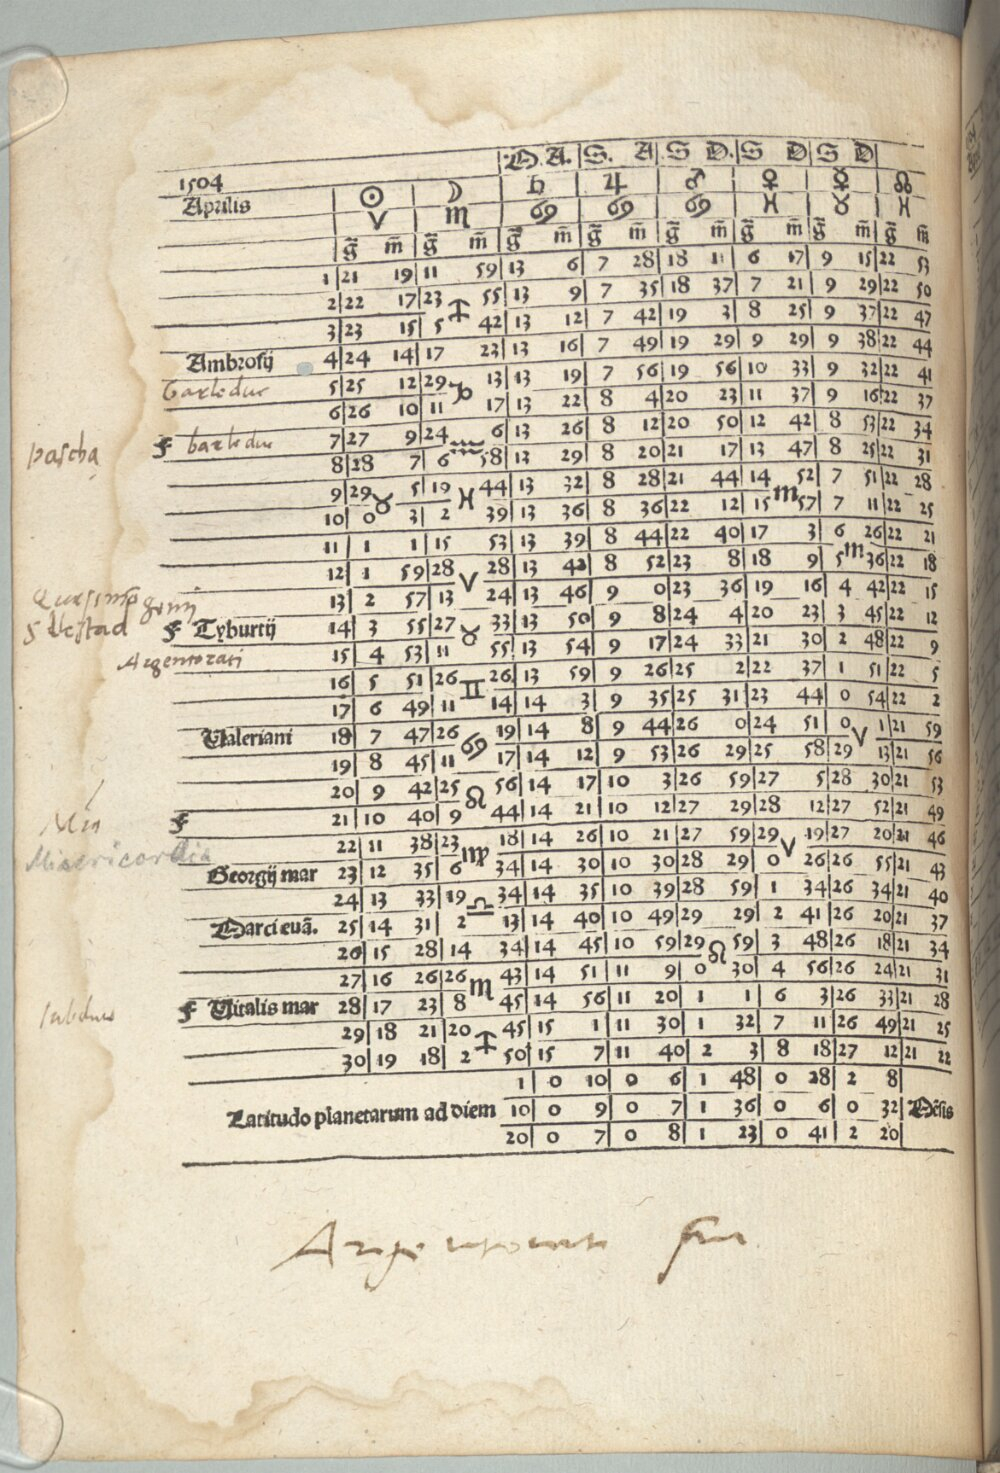 M. A. S. A S D. S D S D
1504 ♄ ♃ ♂ ♀ ☿ ☊
Aprilis ☉ ☽ ♋ ♋ ♋ ♓ ♉ ♓
♈ ♏
g̃ m̃ g̃ m̃ g̃ m̃ g̃ m̃ g̃ m̃ g̃ m̃ g̃ m̃ g̃ m̃
1 21 19 11 59 13 6 7 28 18 11 6 17 9 15 22 53
2 22 17 23 ♐ 55 13 9 7 35 18 37 7 21 9 29 22 50
3 23 15 5 42 13 12 7 42 19 3 8 25 9 37 22 47
Ambrosij 4 24 14 17 23 13 16 7 49 19 29 9 29 9 38 22 44
barleduc 5 25 12 29 ♑ 13 13 19 7 56 19 56 10 33 9 32 22 41
6 26 10 11 17 13 22 8 4 20 23 11 37 9 16 22 37
pascha f barleduc 7 27 9 24 ♒ 6 13 26 8 12 20 50 12 42 8 53 22 34
8 28 7 6 58 13 29 8 20 21 17 13 47 8 25 22 31
9 29 ♉ 5 19 ♓ 44 13 32 8 28 21 44 14 ♏ 52 7 51 22 28
10 0 3 2 39 13 36 8 36 22 12 15 57 7 11 22 25
11 1 1 15 53 13 39 8 44 22 40 17 3 6 ♏ 26 22 21
12 1 59 28 ♈ 28 13 42 8 52 23 8 18 9 5 36 22 18
13 2 57 13 24 13 46 9 0 23 36 19 16 4 42 22 15
f Tyburtij 14 3 55 27 ♉ 33 13 50 9 8 24 4 20 23 3 45 22 12
Argentorati 15 4 53 11 55 13 54 9 17 24 33 21 30 2 48 22 9
16 5 51 26 ♊ 26 13 59 9 26 25 2 22 37 1 51 22 5
17 6 49 11 14 14 3 9 35 25 31 23 44 0 54 22 2
Valeriani 18 7 47 26 ♋ 19 14 8 9 44 26 0 24 51 0 ♈ 1 21 59
19 8 45 11 17 14 12 9 53 26 29 25 58 29 13 21 56
20 9 42 25 ♌ 56 14 17 10 3 26 59 27 5 28 30 21 53
f 21 10 40 9 44 14 21 10 12 27 29 28 12 27 52 21 49
22 11 38 23 ♍ 18 14 26 10 21 27 59 29 ♈ 19 27 20 21 46
Misericordia
Georgij mar 23 12 35 6 34 14 30 10 30 28 29 0 26 26 55 21 43
24 13 33 19 ♎ 34 14 35 10 39 28 59 1 34 26 34 21 40
Marci euã. 25 14 31 2 13 14 40 10 49 29 29 2 41 26 20 21 37
26 15 28 14 34 14 45 10 59 29 ♌ 59 3 48 26 18 21 34
27 16 26 26 ♏ 43 14 51 11 9 0 30 4 56 26 24 21 31
f Vitalis mar 28 17 23 8 45 14 56 11 20 1 1 6 3 26 33 21 28
29 18 21 20 ♐ 45 15 1 11 30 1 32 7 11 26 49 21 25
30 19 18 2 50 15 7 11 40 2 3 8 18 27 12 21 22
1 0 10 0 6 1 48 0 28 2 8
Latitudo planetarum ad diem 10 0 9 0 7 1 36 0 6 0 32 Mẽsis
20 0 7 0 8 1 23 0 41 2 20